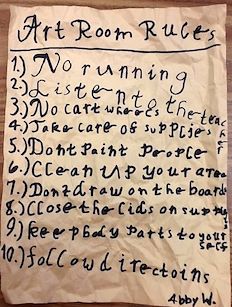 Art Room Rules
1.) No running
2.) Listen to the teacher
3.) No cart wheels
4.) Take care of supplies
5.) Dont paint people
6.) Clean up your area
7.) Dont draw on the board
8.) Close the lids on supplys
9.) keep body parts to your self
10.) follow directoins
Abby W.